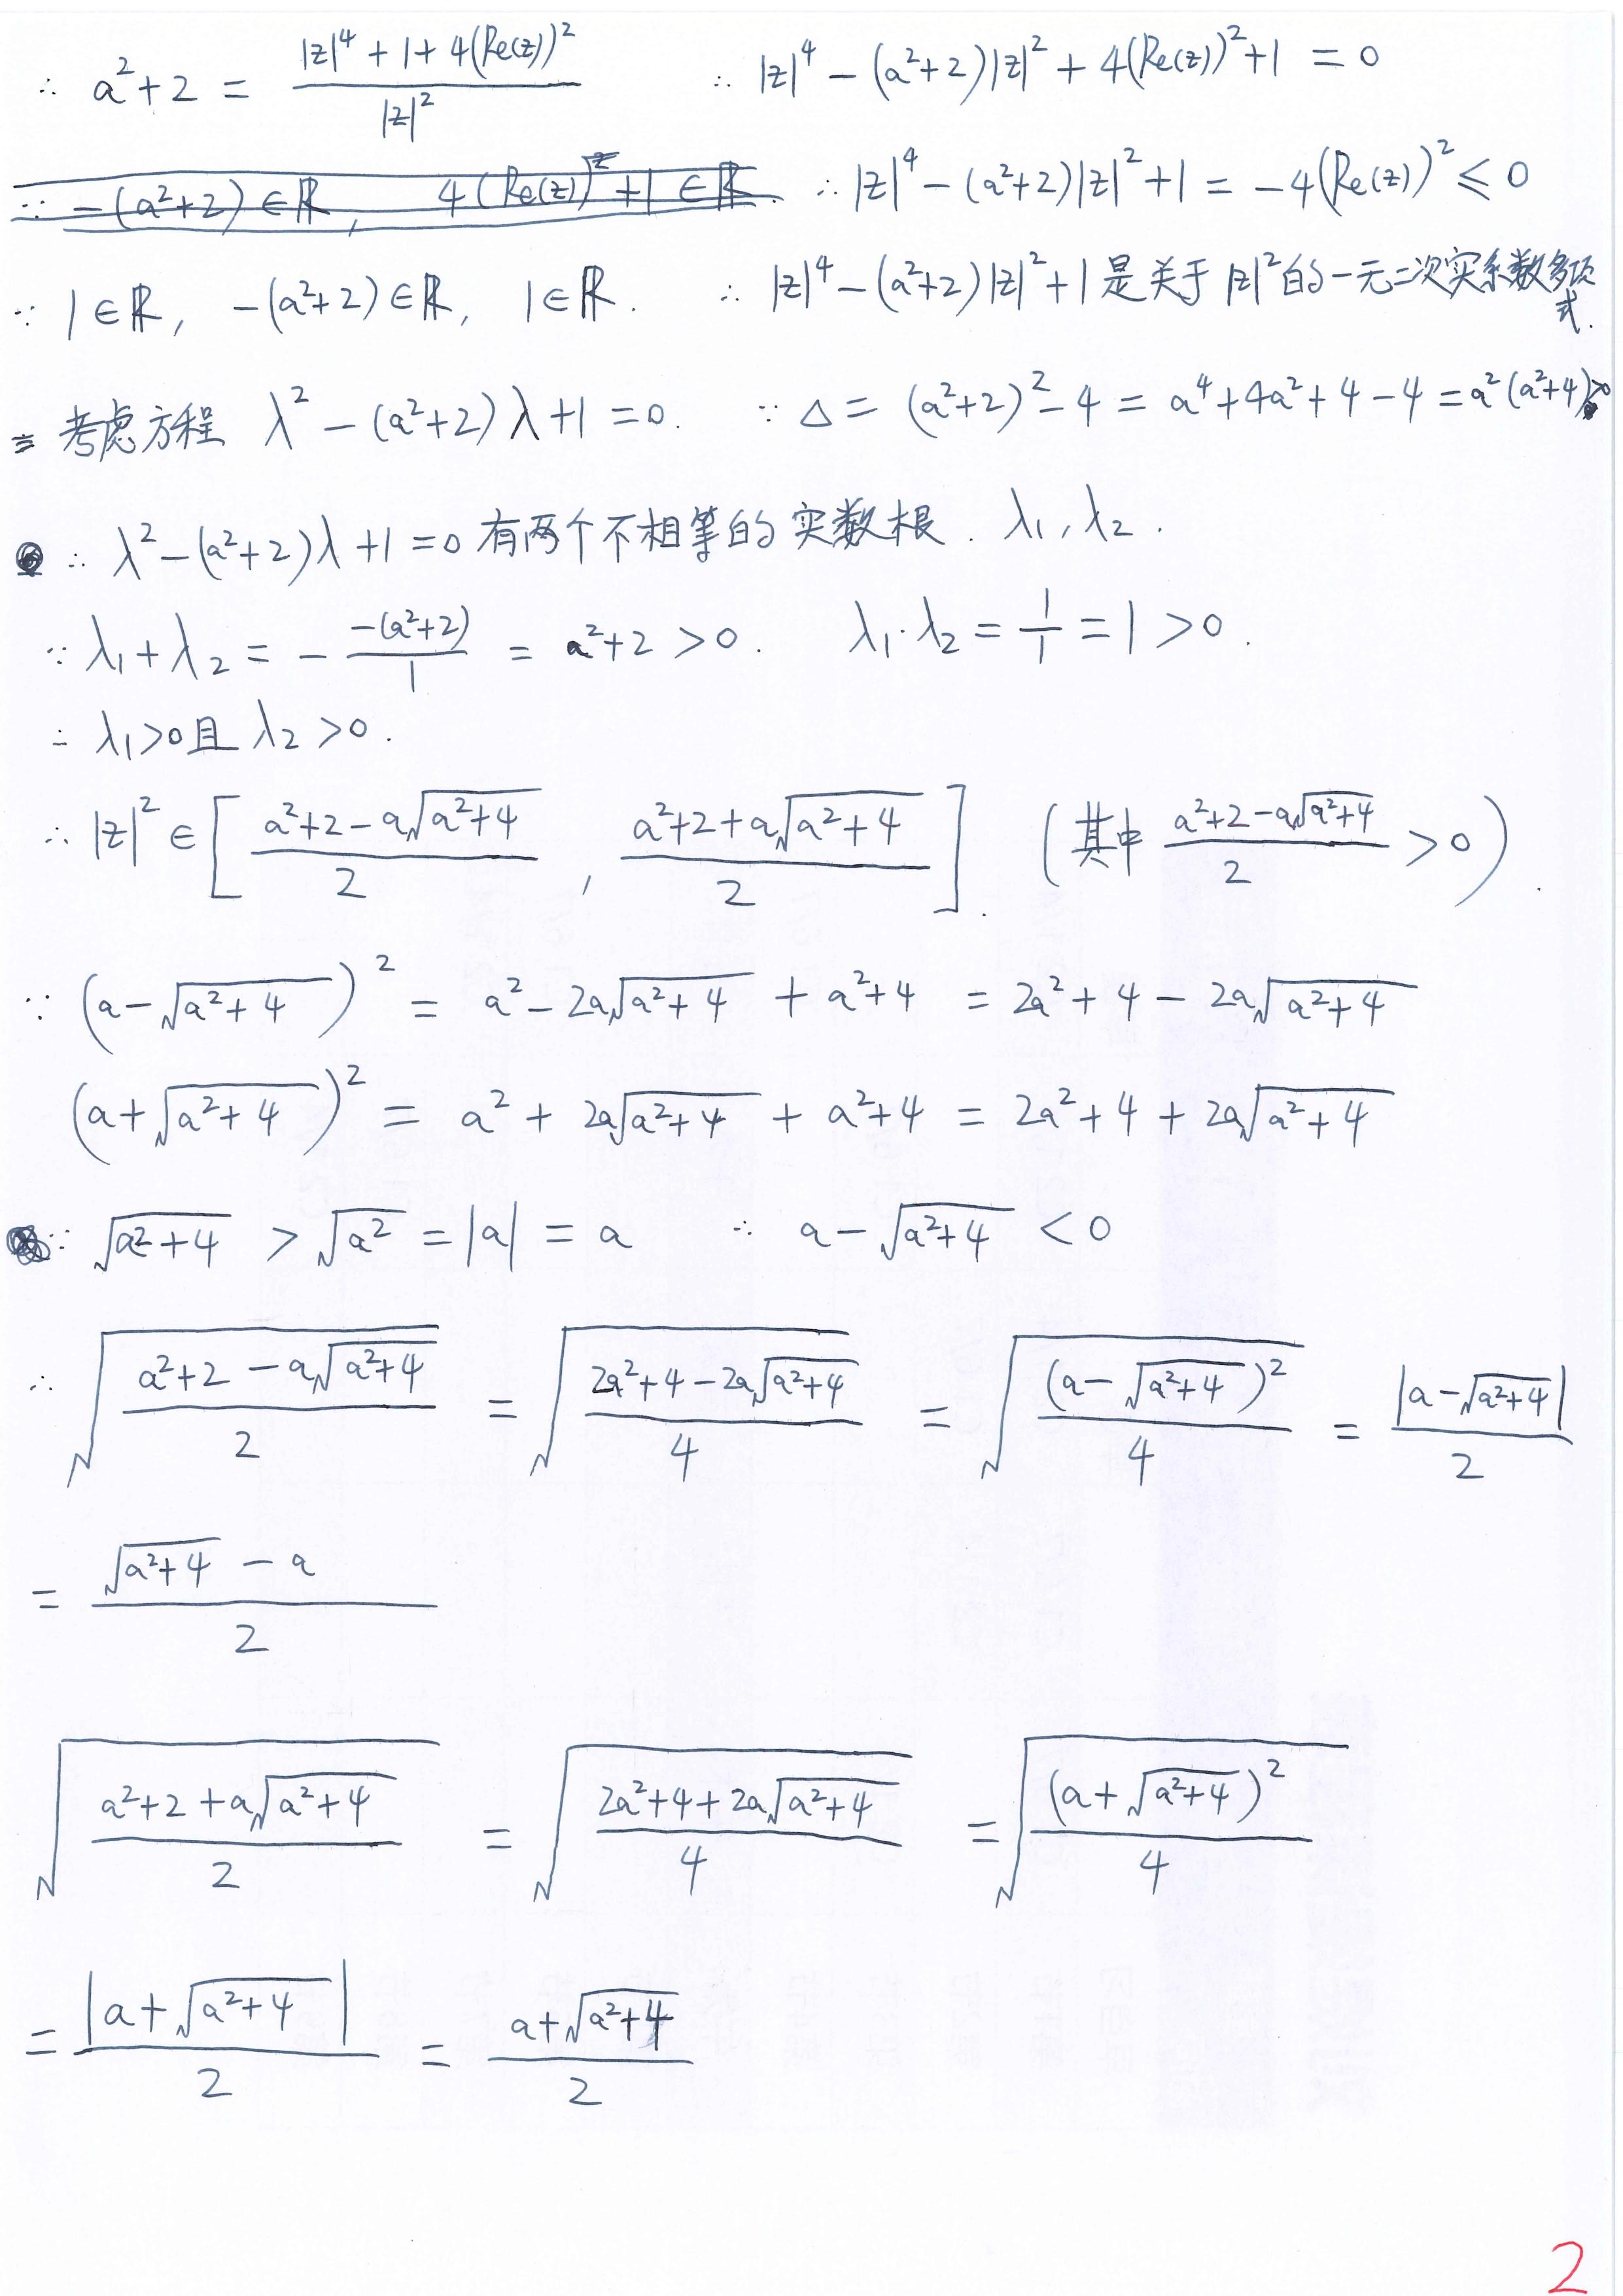 ∴ a²+2 = (|z|⁴+1+4(Re(z))²)/|z|² ∴ |z|⁴-(a²+2)|z|²+4(Re(z))²+1 = 0
∵ -(a²+2)∈ℝ, 4(Re(z))²+1∈ℝ. ∴ |z|⁴-(a²+2)|z|²+1 = -4(Re(z))² ≤ 0
∵ 1∈ℝ, -(a²+2)∈ℝ, 1∈ℝ. ∴ |z|⁴-(a²+2)|z|²+1是关于|z|²的一元二次实系数多项式.
考虑方程 λ²-(a²+2)λ+1=0. ∵ Δ = (a²+2)²-4 = a⁴+4a²+4-4 = a²(a²+4)>0
∴ λ²-(a²+2)λ+1=0有两个不相等的实数根. λ₁, λ₂.
∵ λ₁+λ₂ = -(-(a²+2))/1 = a²+2 > 0. λ₁·λ₂ = 1/1 = 1 > 0.
∴ λ₁>0且λ₂>0.
∴ |z|² ∈ [(a²+2-a√(a²+4))/2, (a²+2+a√(a²+4))/2]. (其中 (a²+2-a√(a²+4))/2 > 0).
∵ (a-√(a²+4))² = a²-2a√(a²+4)+a²+4 = 2a²+4-2a√(a²+4)
(a+√(a²+4))² = a²+2a√(a²+4)+a²+4 = 2a²+4+2a√(a²+4)
∵ √(a²+4) > √(a²) = |a| = a ∴ a-√(a²+4) < 0
∴ √((a²+2-a√(a²+4))/2) = √((2a²+4-2a√(a²+4))/4) = √((a-√(a²+4))²/4) = |a-√(a²+4)|/2
= (√(a²+4)-a)/2
√((a²+2+a√(a²+4))/2) = √((2a²+4+2a√(a²+4))/4) = √((a+√(a²+4))²/4)
= |a+√(a²+4)|/2 = (a+√(a²+4))/2
2